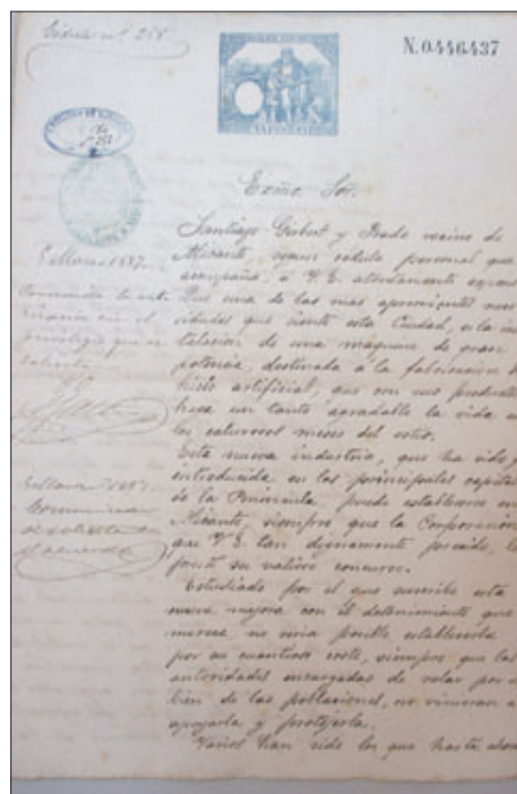 Cédula nº 258
N. 0.446.437
Exmo. Sor.
Santiago Gisbert y Prado vecino de
Alicante, segun cedula personal que
acompaña, a V. E. atentamente expone:
Que una de las mas apremiantes nece
sidades que siente esta Ciudad, es la ins
talacion de una maquina de gran
potencia, destinada á la fabricacion de
hielo artificial, que con sus productos
haga un tanto agradable la vida en
los calurosos meses del estio.
Esta nueva industria, que ha sido
introducida en las principales capitales
de la Peninsula, puede establecerse en
Alicante, siempre que la Corporacion
que V. E. tan dignamente preside, le
preste su valioso concurso.
Estudiado por el que suscribe esta
nueva mejora con el detenimiento que
merece, no seria posible establecerla
por su cuantioso coste, siempre que las
autoridades encargadas de velar por el
bien de las poblaciones, no vinieran á
apoyarla y protejerla.
Varios han sido los que hasta ahora
5 Marzo 1887.
privilegio que se
solicita
Marzo 1887.
Comuniquese
el acuerdo